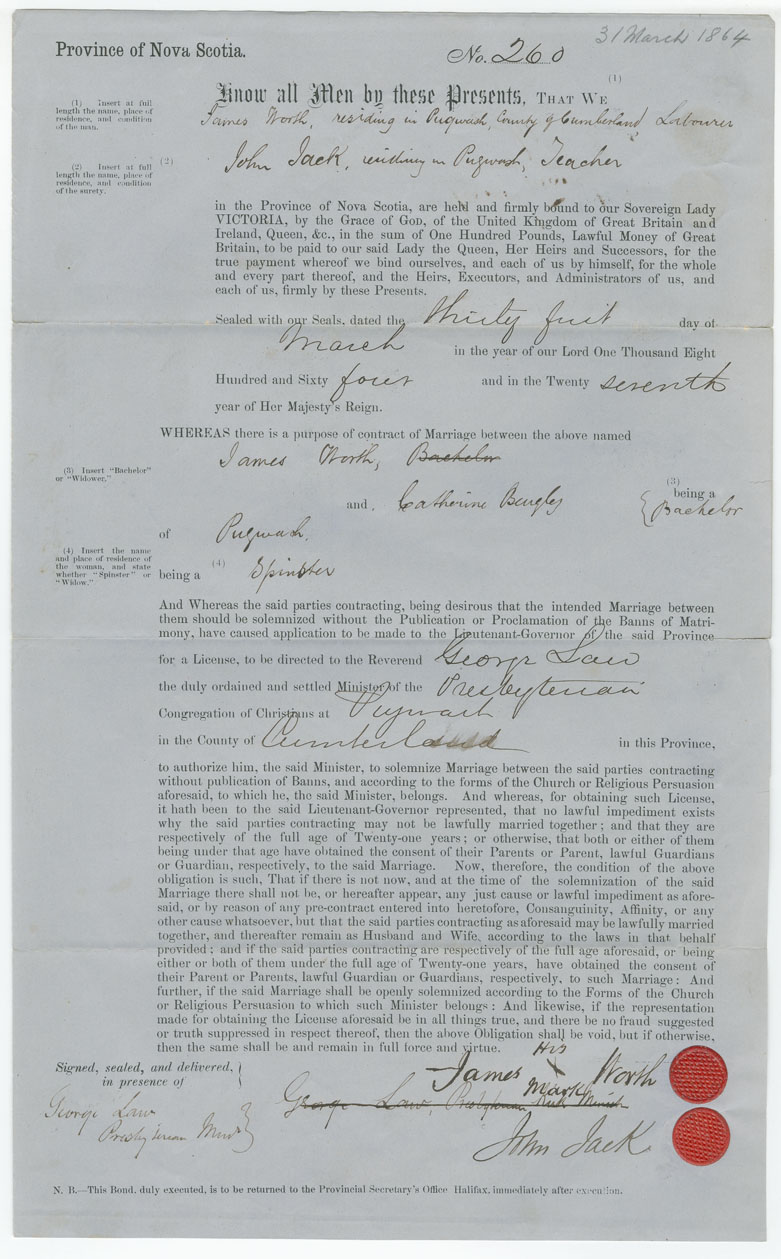 31 March 1864
Province of Nova Scotia.
No. 260
Know all Men by these Presents, THAT WE (1)
(1) Insert at full
length the name, place of
residence, and condition
of the man.
James Worth, residing in Pugwash, County of Cumberland, Labourer
(2) Insert at full
length the name, place of
residence, and condition
of the surety.
(2)
John Jack, residing in Pugwash, Teacher
in the Province of Nova Scotia, are held and firmly bound to our Sovereign Lady
VICTORIA, by the Grace of GOD, of the United Kingdom of Great Britain and
Ireland, Queen, &c., in the sum of One Hundred Pounds, Lawful Money of Great
Britain, to be paid to our said Lady the Queen, Her Heirs and Successors, for the
true payment whereof we bind ourselves, and each of us by himself, for the whole
and every part thereof, and the Heirs, Executors, and Administrators of us, and
each of us, firmly by these Presents.
Sealed with our Seals, dated the thirty first day of
March in the year of our Lord One Thousand Eight
Hundred and Sixty four and in the Twenty seventh
year of Her Majesty's Reign.
WHEREAS there is a purpose of contract of Marriage between the above named
(3) Insert "Bachelor"
or "Widower."
James Worth, Bachelor
(3)
being a
Bachelor
and, Catherine
of Pugwash
(4) Insert the name
and place of residence of
the woman, and state
whether "Spinster" or
"Widow."
being a (4) Spinster
And Whereas the said parties contracting, being desirous that the intended Marriage between
them should be solemnized without the Publication or Proclamation of the Banns of Matri-
mony, have caused application to be made to the Lieutenant-Governor of the said Province
for a License, to be directed to the Reverend George Law
the duly ordained and settled Minister of the Presbyterian
Congregation of Christians at Pugwash
in the County of Cumberland in this Province,
to authorize him, the said Minister, to solemnize Marriage between the said parties contracting
without publication of Banns, and according to the forms of the Church or Religious Persuasion
aforesaid, to which he, the said Minister, belongs. And whereas, for obtaining such License,
it hath been to the said Lieutenant-Governor represented, that no lawful impediment exists
why the said parties contracting may not be lawfully married together; and that they are
respectively of the full age of Twenty-one years; or otherwise, that both or either of them
being under that age have obtained the consent of their Parents or Parent, lawful Guardians
or Guardian, respectively, to the said Marriage. Now, therefore, the condition of the above
obligation is such, That if there is not now, and at the time of the solemnization of the said
Marriage there shall not be, or hereafter appear, any just cause or lawful impediment as afore-
said, or by reason of any pre-contract entered into heretofore, Consanguinity, Affinity, or any
other cause whatsoever, but that the said parties contracting as aforesaid may be lawfully married
together, and thereafter remain as Husband and Wife, according to the laws in that behalf
provided; and if the said parties contracting are respectively of the full age aforesaid, or being
either or both of them under the full age of Twenty-one years, have obtained the consent of
their Parent or Parents, lawful Guardian or Guardians, respectively, to such Marriage: And
further, if the said Marriage shall be openly solemnized according to the Forms of the Church
or Religious Persuasion to which such Minister belongs: And likewise, if the representation
made for obtaining the License aforesaid be in all things true, and there be no fraud suggested
or truth suppressed in respect thereof, then the above Obligation shall be void, but if otherwise,
then the same shall be and remain in full force and virtue.
Signed, sealed, and delivered,
in presence of
His
James X Worth
Mark
George Law, Presbyterian Minist
George Law
Presbyterian Minr
John Jack
N. B.—This Bond, duly executed, is to be returned to the Provincial Secretary's Office Halifax, immediately after execution.